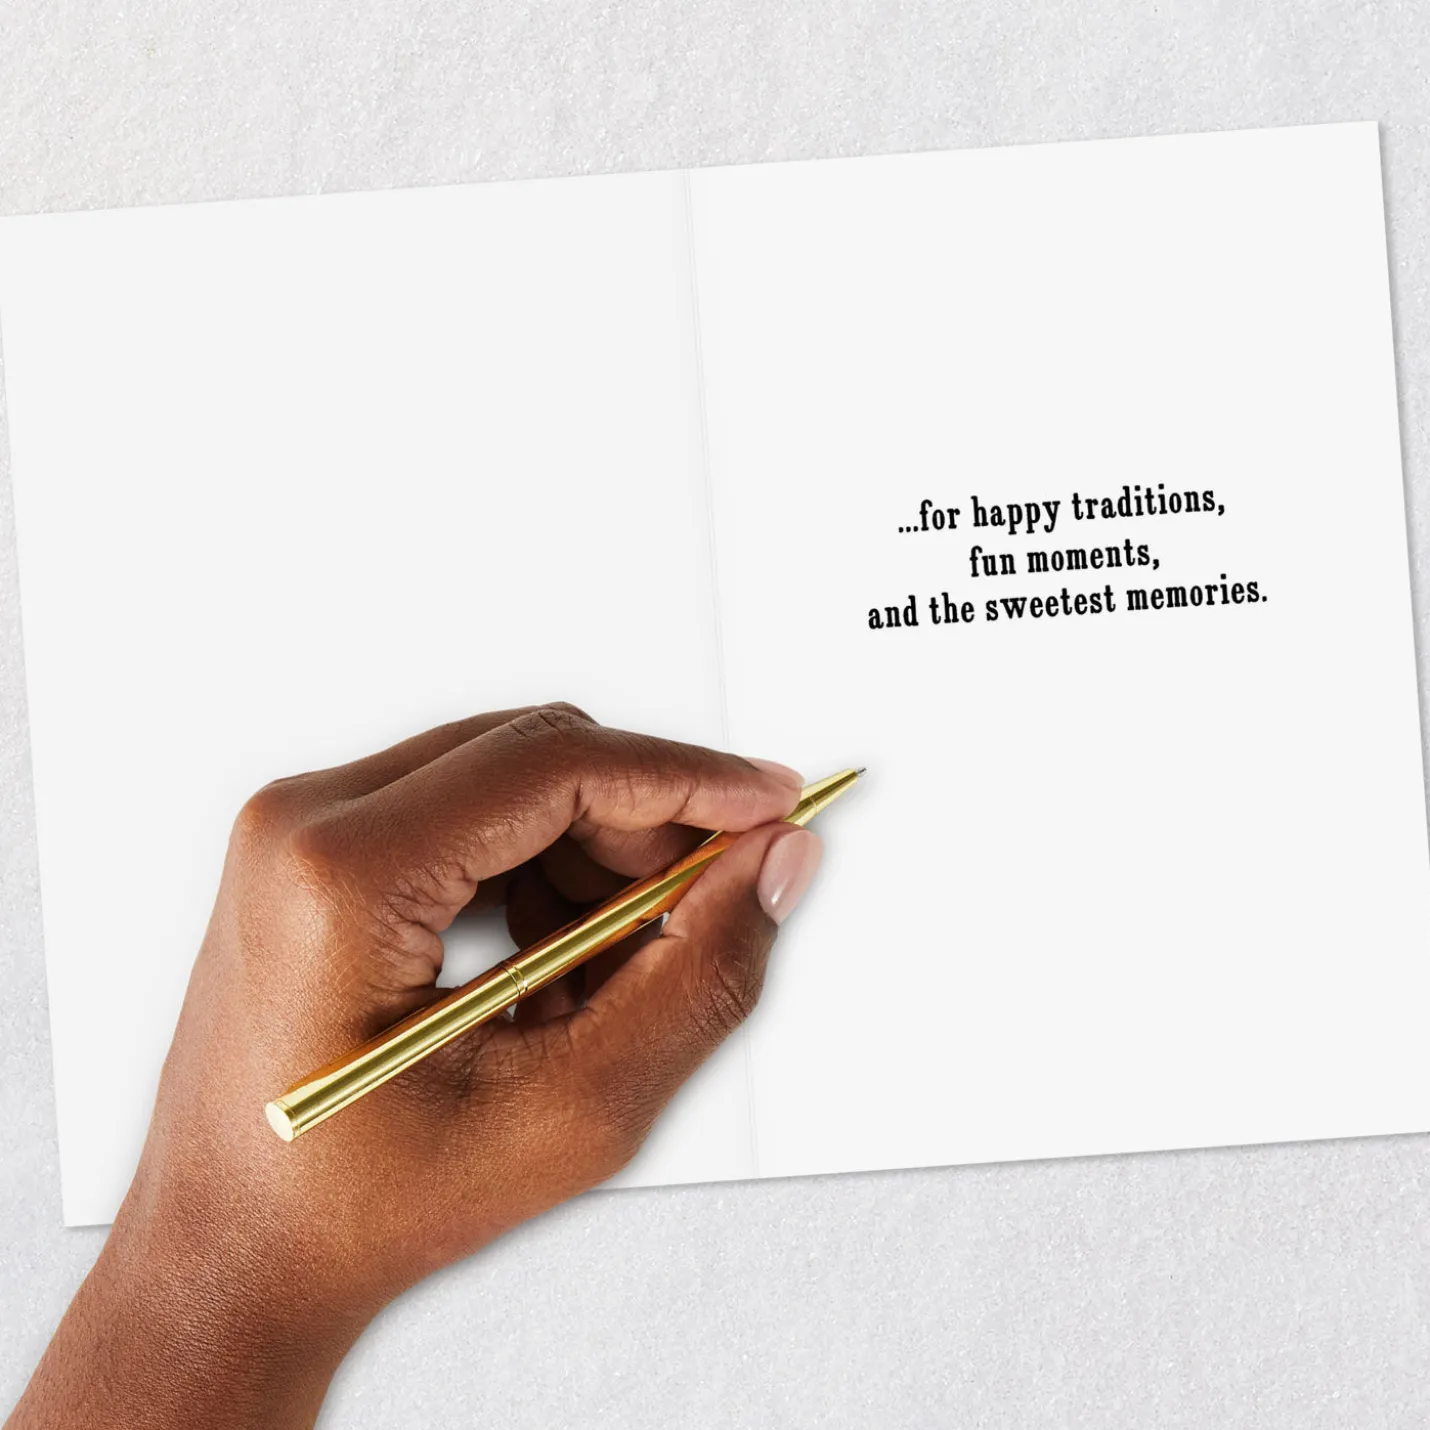 ...for happy traditions,
fun moments,
and the sweetest memories.